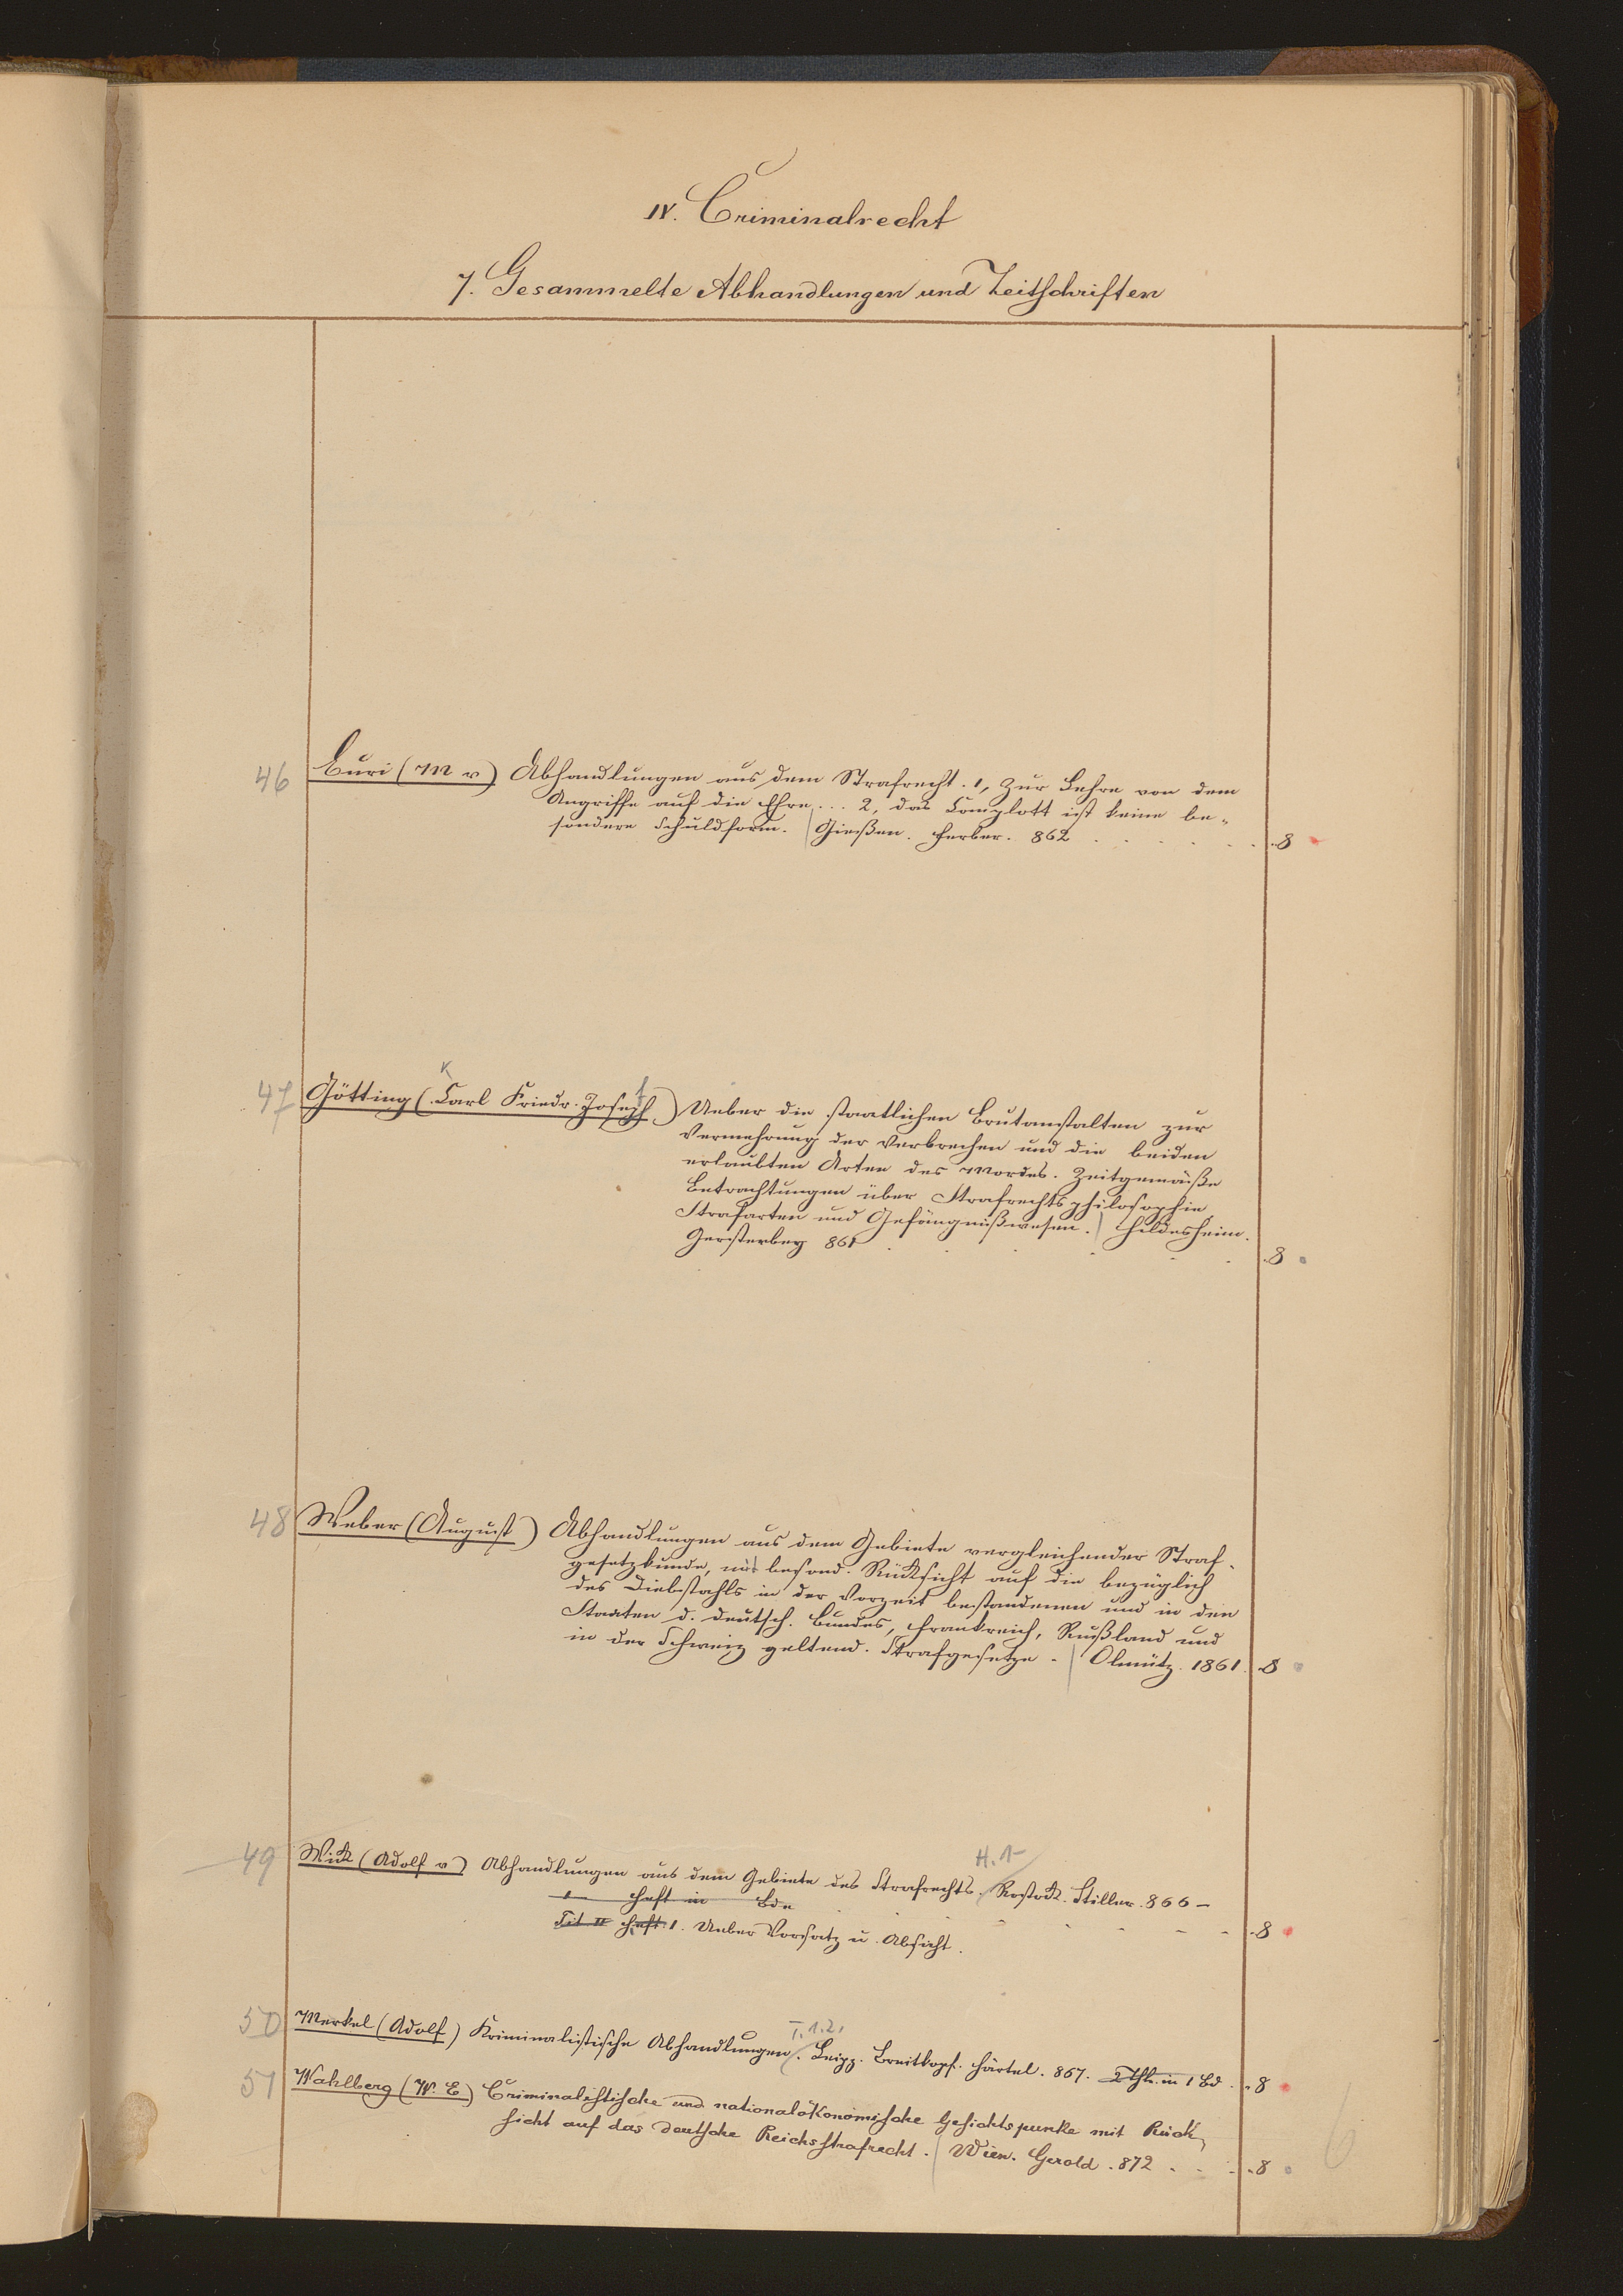 IV. Criminalrecht
7. Gesammelte Abhandlungen und Zeitschriften
46 Buri (M v) Abhandlungen aus dem Strafrecht. 1, Zur Lehre von dem
Angriffe auf die Ehre... 2, das Complott ist keine be-
sondere Schuldform. Gießen. Ferber. 862 . . . . . . 8
K f
47 Götting (Carl Friedr. Joseph) Ueber die staatlichen Brutanstalten zur
Vermehrung der Verbrechen und die beiden
erlaubten Arten des Mordes. Zeitgemäße
Betrachtungen über Strafrechtsphilosophie
Strafarten und Gefängnißwesen. Hildesheim.
Gerstenberg 861 . . . . . 8
48 Weber (August) Abhandlungen aus dem Gebiete vergleichender Straf-
gesetzkunde, mit besond. Rücksicht auf die bezüglich
des Diebstahls in der Vorzeit bestandenen und in den
Staaten d. deutsch. Bundes, Frankreich, Rußland und
in der Schweiz geltend. Strafgesetze. Olmütz. 1861. 8
H. 1-
49 Wick (Adolf v) Abhandlungen aus dem Gebiete des Strafrechts. Rostock. Stiller. 866 –
Heft in Bde . . . . . . 8
Heft. 1. Ueber Vorsatz u. Absicht.
T. 1.2,
50 Merkel (Adolf) Kriminalistische Abhandlungen. Leipz. Breitkopf. Härtel. 867. 2 Thle. in 1 Bd . 8
51 Wahlberg (W. E) Criminalistische und nationalökonomische Gesichtspunke mit Rück-
sicht auf das deutsche Reichsstrafrecht. Wien. Gerold. 872 . . . 8
6